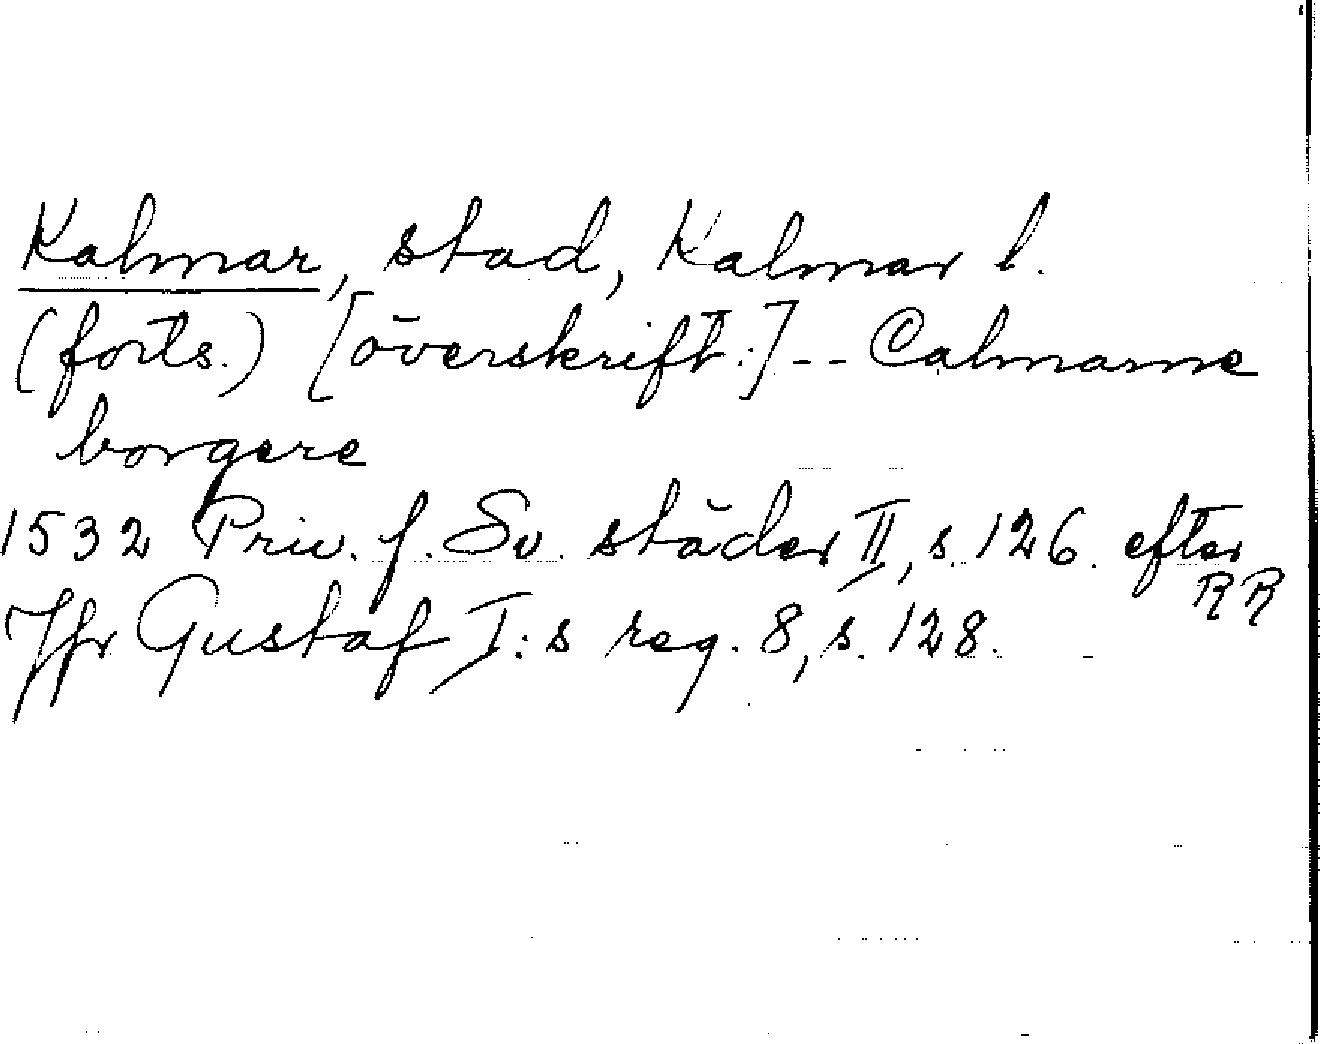 Kalmar, stad, Kalmar l.
(forts.) [överskrift:] -- Calmarne
borgere
1532 Priv. f. Sv. städer II, s. 126 efter
RR
Jfr Gustaf I:s reg. 8, s. 128.